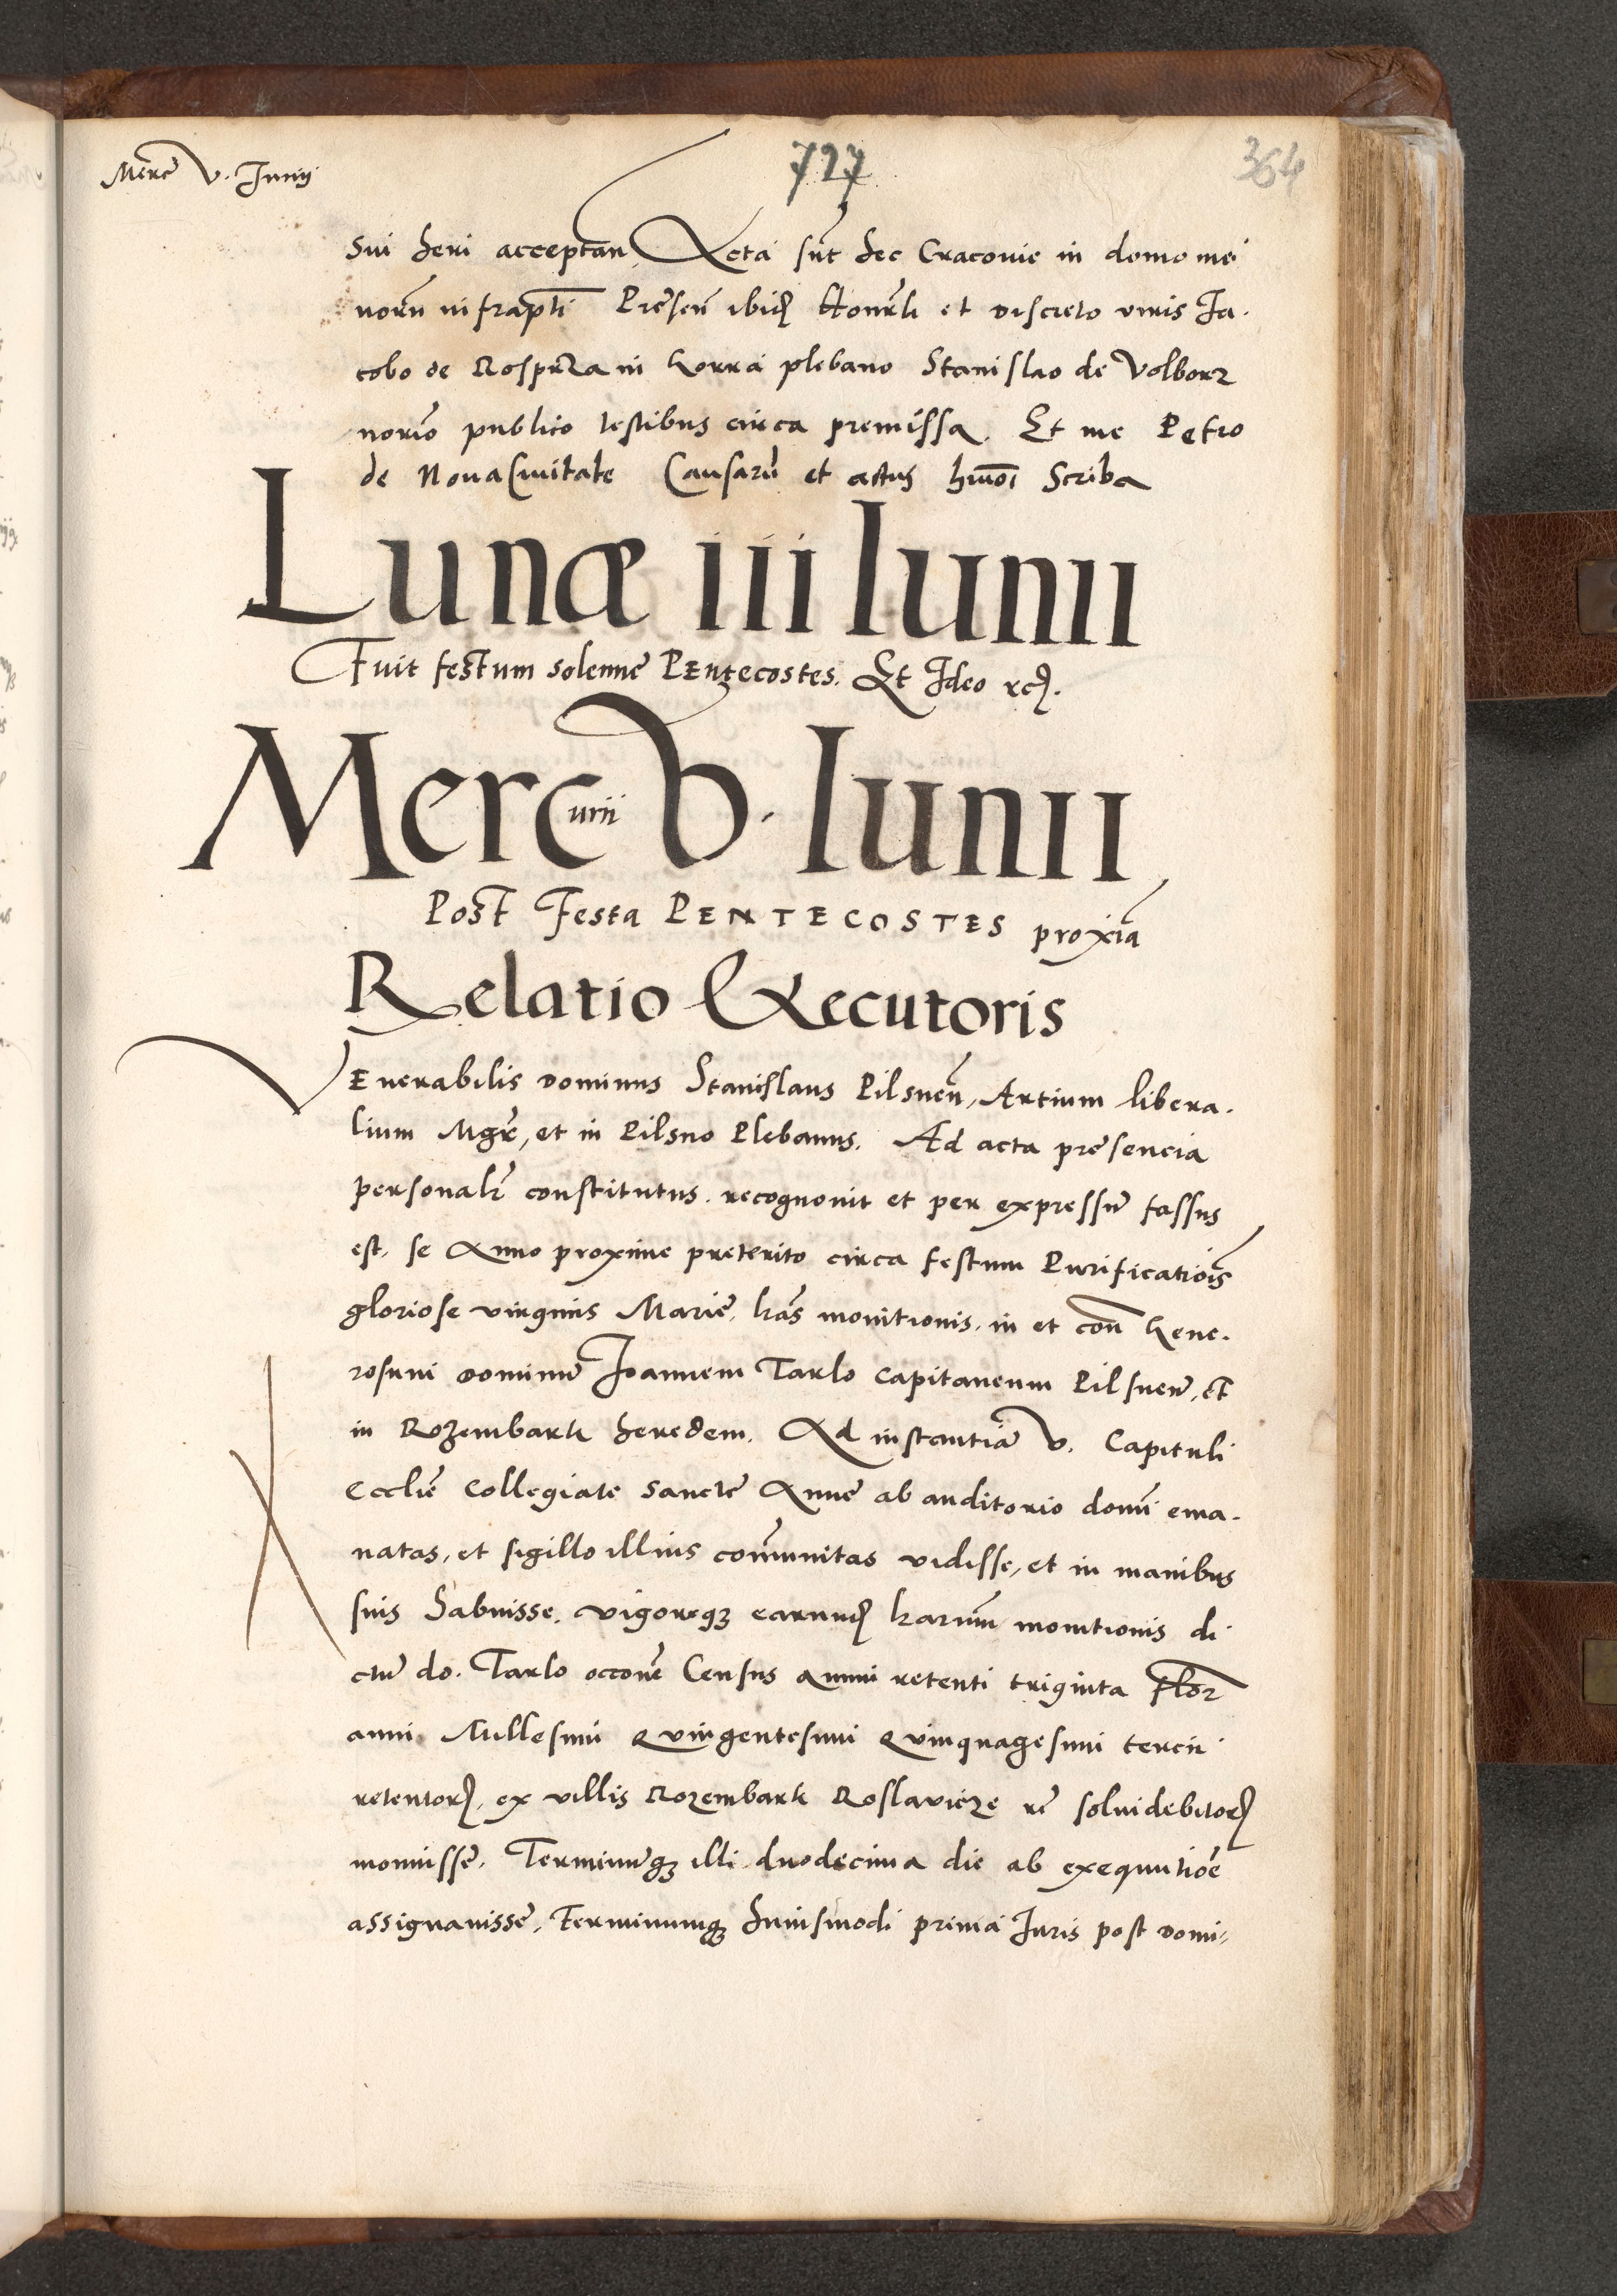 Merc̄ v. Junij
727
364
Sui heri acceptan̄ Acta sūt hec Cracovie in domo mei
norīj infrapti Presen̄ ibid Honrl̄i et discreto viris Ja-
cobo de Rosprza in gorra plebano Stanislao de Volborz
norīo publico testibus circa premissa. Et me Petro
de Novacivitate Causarū et actus hmōi Scriba
Lunæ iii Iunii
Fuit festum solenne PENtecostes. Et Ideo rc̄.
Mercurii v. Iunii
Post Festa PENTECOSTES proxiā
Relatio Executoris
VEnerabilis dominus Stanislaus Pilsnen̄, Artium libera-
lium Mgr̄, et in Pilsno Plebanus. Ad acta presencia
personalr̄ constitutus. recognovit et per expressū fassus
est. se Anno proxime preterito circa festum Purificatiōis
gloriose virginis Marie, lrās monitionis, in et con̄ Gene-
rosum dominū Joannem Tarlo Capitaneum Pilsnen̄, et
in Rozembark heredem. Ad instantiā v. Capituli
Ecclīe Collegiate Sancte Anne ab auditorio domī ema-
natas, et sigillo illius com̄unitas vidisse, et in manibus
suis habuisse. vigoreqȝ earund lrarum̄ monitionis di
ctū do. Tarlo occōne Census annui retenti triginta flor
anni Millesimi Quingentesimi Quinquagesimi tercii
retentorꝝ, ex villis Rozembark Roslavicze rc̄ solvi debitorꝝ
monuisse. Terminūqȝ illi duodecima die ab exequutiōe
assignavisse, Terminumqȝ huiusmodi primā Juris post domi-